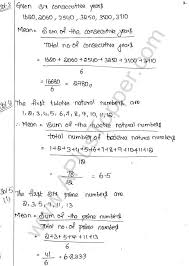 Given six consecutive years
1620, 2060, 2540, 3250, 3500, 3710
Mean = Sum of the consecutive years
Total no. of consecutive years
= 1620 + 2060 + 2540 + 3250 + 3500 + 3710
6
= 16680
6
= 2780
The first twelve natural numbers are
1, 2, 3, 4, 5, 6, 7, 8, 9, 10, 11, 12
Mean = Sum of the twelve natural numbers
total number of twelve natural numbers
= 1+2+3+4+5+6+7+8+9+10+11+12
12
= 78
12
= 6.5
The first six prime numbers are
2, 3, 5, 7, 11, 13
Mean = Sum of the prime numbers
Total no. of prime numbers
= 2+3+5+7+11+13
6
= 41
6
= 6.8333